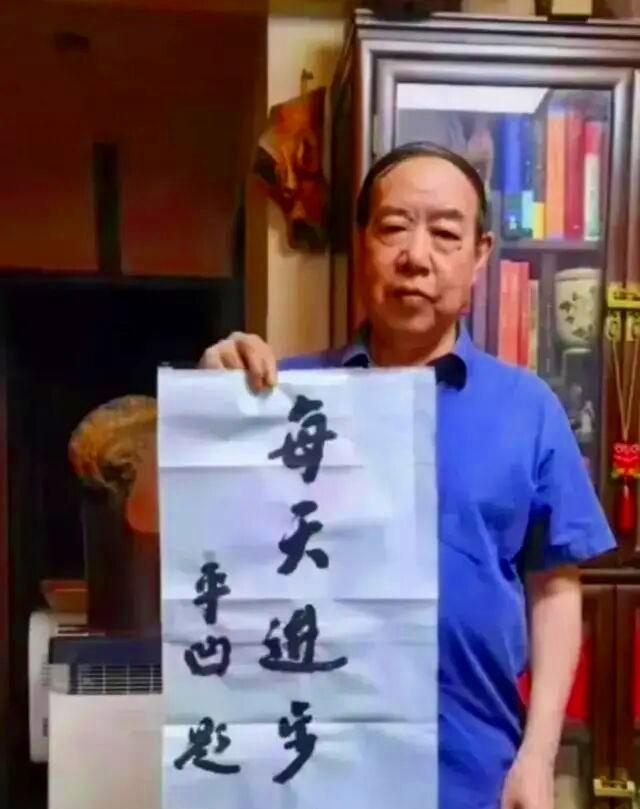 每天进步
平凹题